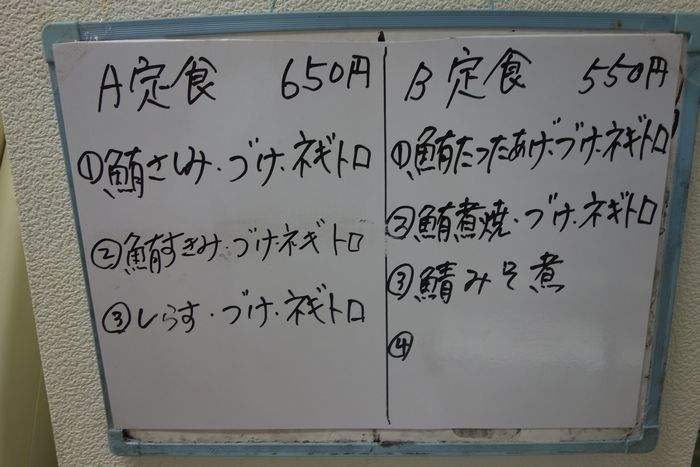 A定食 650円
①鮪さしみ・づけ・ネギトロ
②鮪すきみ・づけ・ネギトロ
③しらす・づけ・ネギトロ
B定食 550円
①鮪たったあげ・づけ・ネギトロ
②鮪煮焼・づけ・ネギトロ
③鯖みそ煮
④